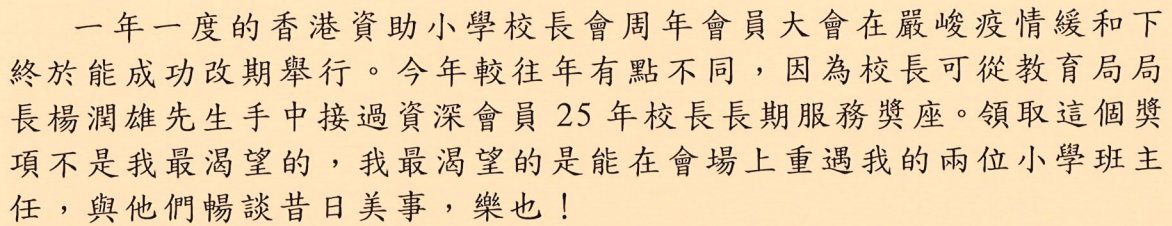 一年一度的香港資助小學校長會周年會員大會在嚴峻疫情緩和下
終於能成功改期舉行。今年較往年有點不同，因為校長可從教育局局
長楊潤雄先生手中接過資深會員 25 年校長長期服務獎座。領取這個獎
項不是我最渴望的，我最渴望的是能在會場上重遇我的兩位小學班主
任，與他們暢談昔日美事，樂也！